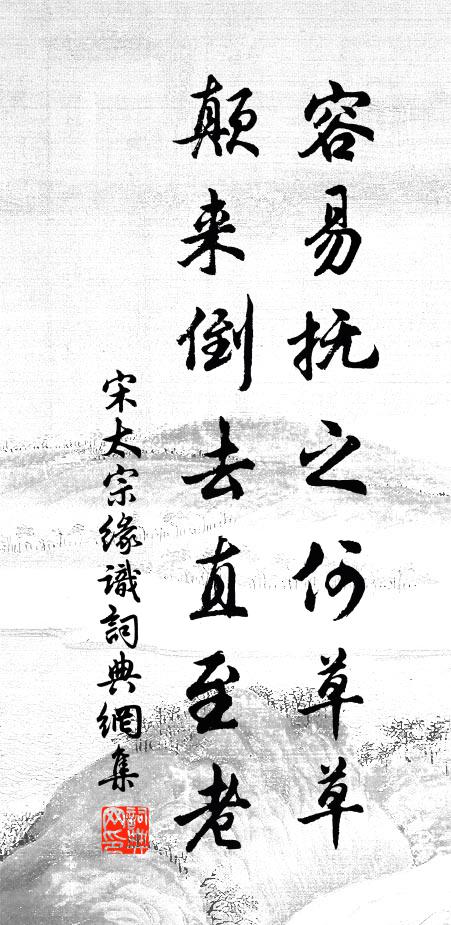 容易抚之何草草
颠来倒去直至老
宋太宗缘識詞典網集